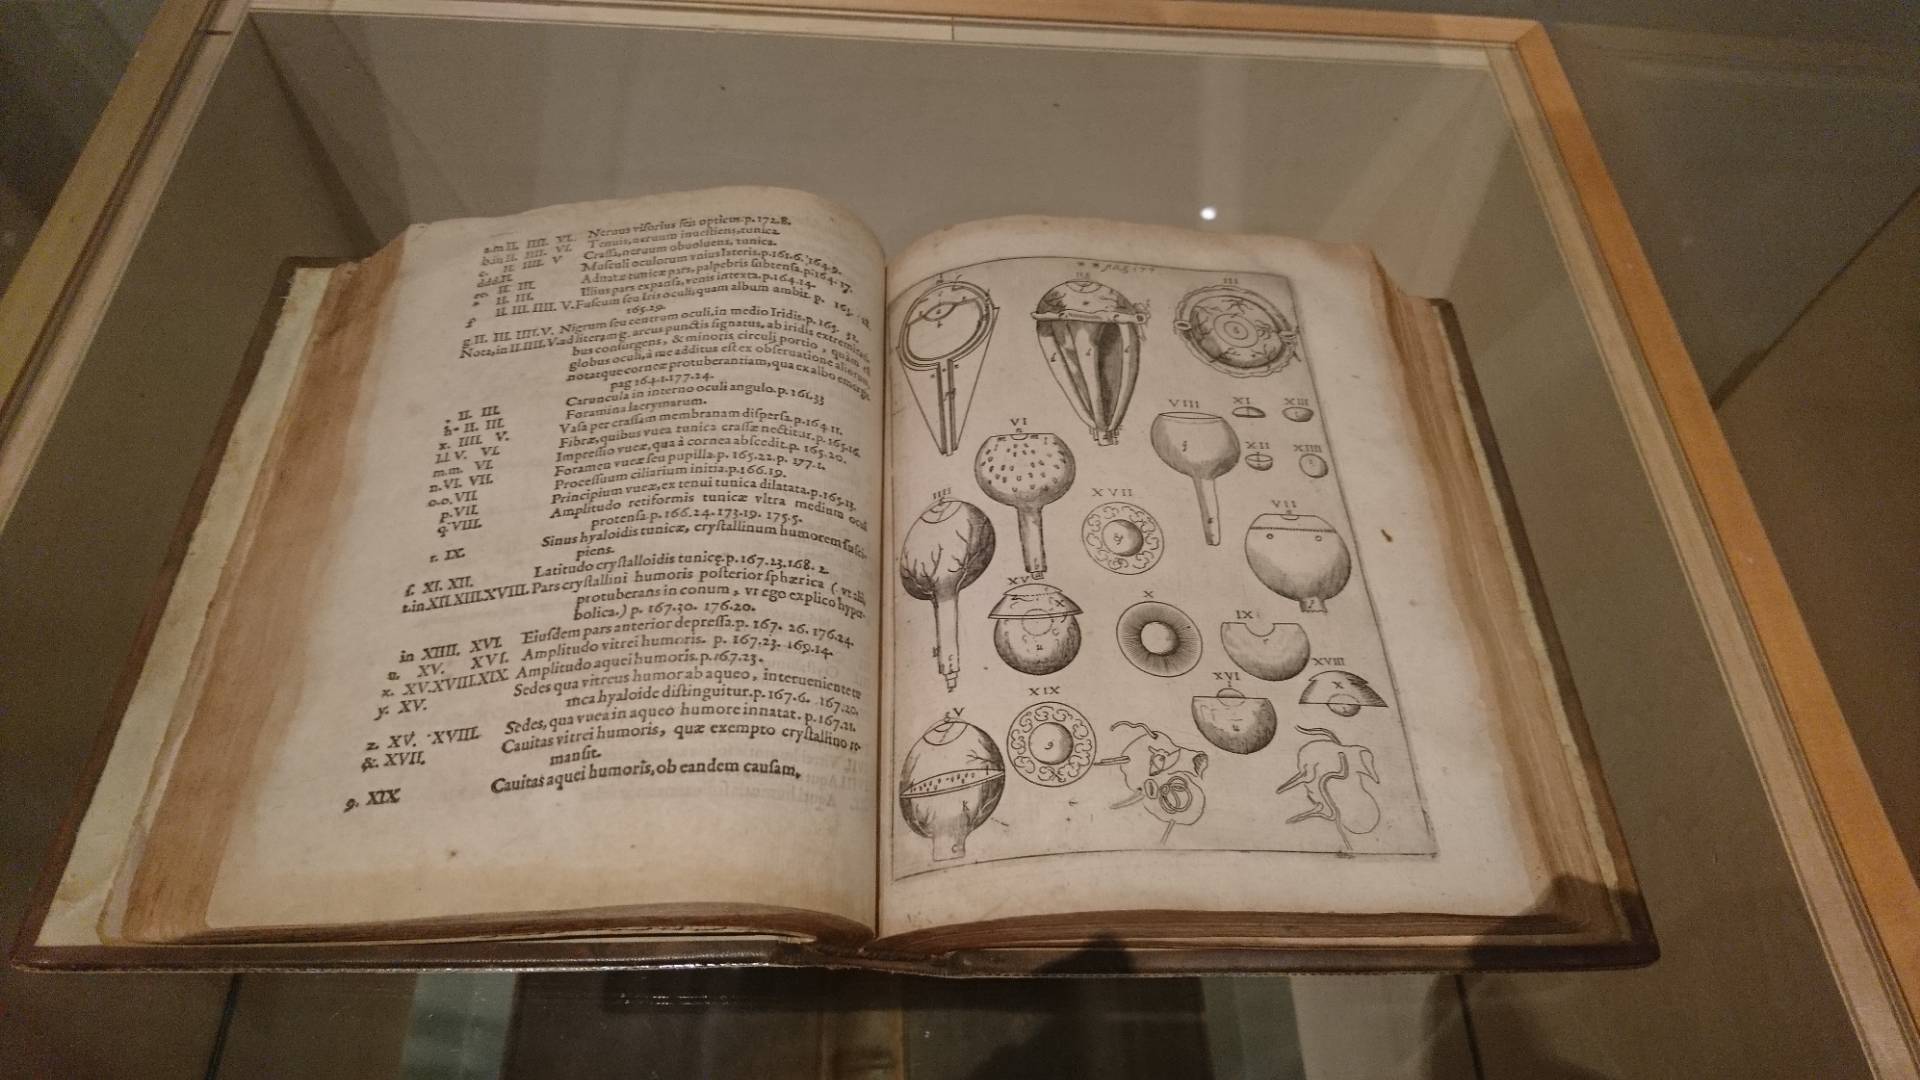 a.m II. IIII. VI. Neruus visorius seu opticus. p. 172.8.
b. in II. IIII. VI. Tenuis, neruum inuestiens, tunica.
c. II. IIII. V Crassa, neruum obuoluens, tunica.
ddd. II. Musculi oculorum vnius lateris. p. 161.6. 164.9.
II. III. Adnatæ tunicæ pars, palpebris subtensa. p. 164. 17.
II. III. Illius pars expansa, venis intexta. p. 164.14.
f. II. III. IIII. V. Fuscum seu Iris oculi, quam album ambit. p. 165.
165.29.
g. II. III. IIII. V. Nigrum seu centrum oculi, in medio Iridis. p. 165. 32.
Nota, in II. IIII. V. ad literam g. arcus punctis signatus, ab iridis extremitati-
bus consurgens, & minoris circuli portio, quàm est
globus oculi, à me additus est ex obseruatione aliorum,
notatque corneæ protuberantiam, qua ex albo emergit.
pag 164.1. 177.24.
II. III. Caruncula in interno oculi angulo. p. 161.33
h. II. III. Foramina lacrymarum.
x. IIII. V. Vasa per crassam membranam dispersa. p. 164 11.
l.l V. VI. Fibræ, quibus vuea tunica crassæ nectitur. p. 165.16.
m.m. VI. Impressio vueæ, qua à cornea abscedit. p. 165.20.
n. VI. VII. Foramen vueæ seu pupilla. p. 165.22. p. 177.1.
o.o. VII Processuum ciliarium initia. p. 166.19.
p. VII. Principium vueæ, ex tenui tunica dilatata. p. 165.13.
q. VIII. Amplitudo retiformis tunicæ vltra medium oculi
protensa. p. 166.24. 173.19. 175.5.
r. IX. Sinus hyaloidis tunicæ, crystallinum humorem susci-
piens.
s. XI. XII. Latitudo crystalloidis tunicę. p. 167.23. 168. 2.
t. in. XII. XIII. XVIII. Pars crystallini humoris posterior sphærica (
protuberans in conum, vt ego explico hyper-
bolica.) p. 167.30. 176.20.
in XIIII. XVI. Eiusdem pars anterior depressa. p. 167. 26. 176.24.
u. XV. XVI. Amplitudo vitrei humoris. p. 167.23. 169.14.
x. XV. XVIII. XIX. Amplitudo aquei humoris. p. 167.23.
y. XV. Sedes qua vitreus humor ab aqueo, interueniente tu-
nica hyaloide distinguitur. p. 167.6. 167.20.
z. XV. XVIII. Sedes, qua vuea in aqueo humore innatat. p. 167.21.
&. XVII. Cauitas vitrei humoris, quæ exempto crystallino re-
mansit.
9. XIX. Cauitas aquei humoris, ob eandem causam,
pag 177
I
II
III
VIII
XI
XIII
VI
XII
XIIII
IIII
XVII
VII
XV
X
IX
XVIII
XVI
XIX
V